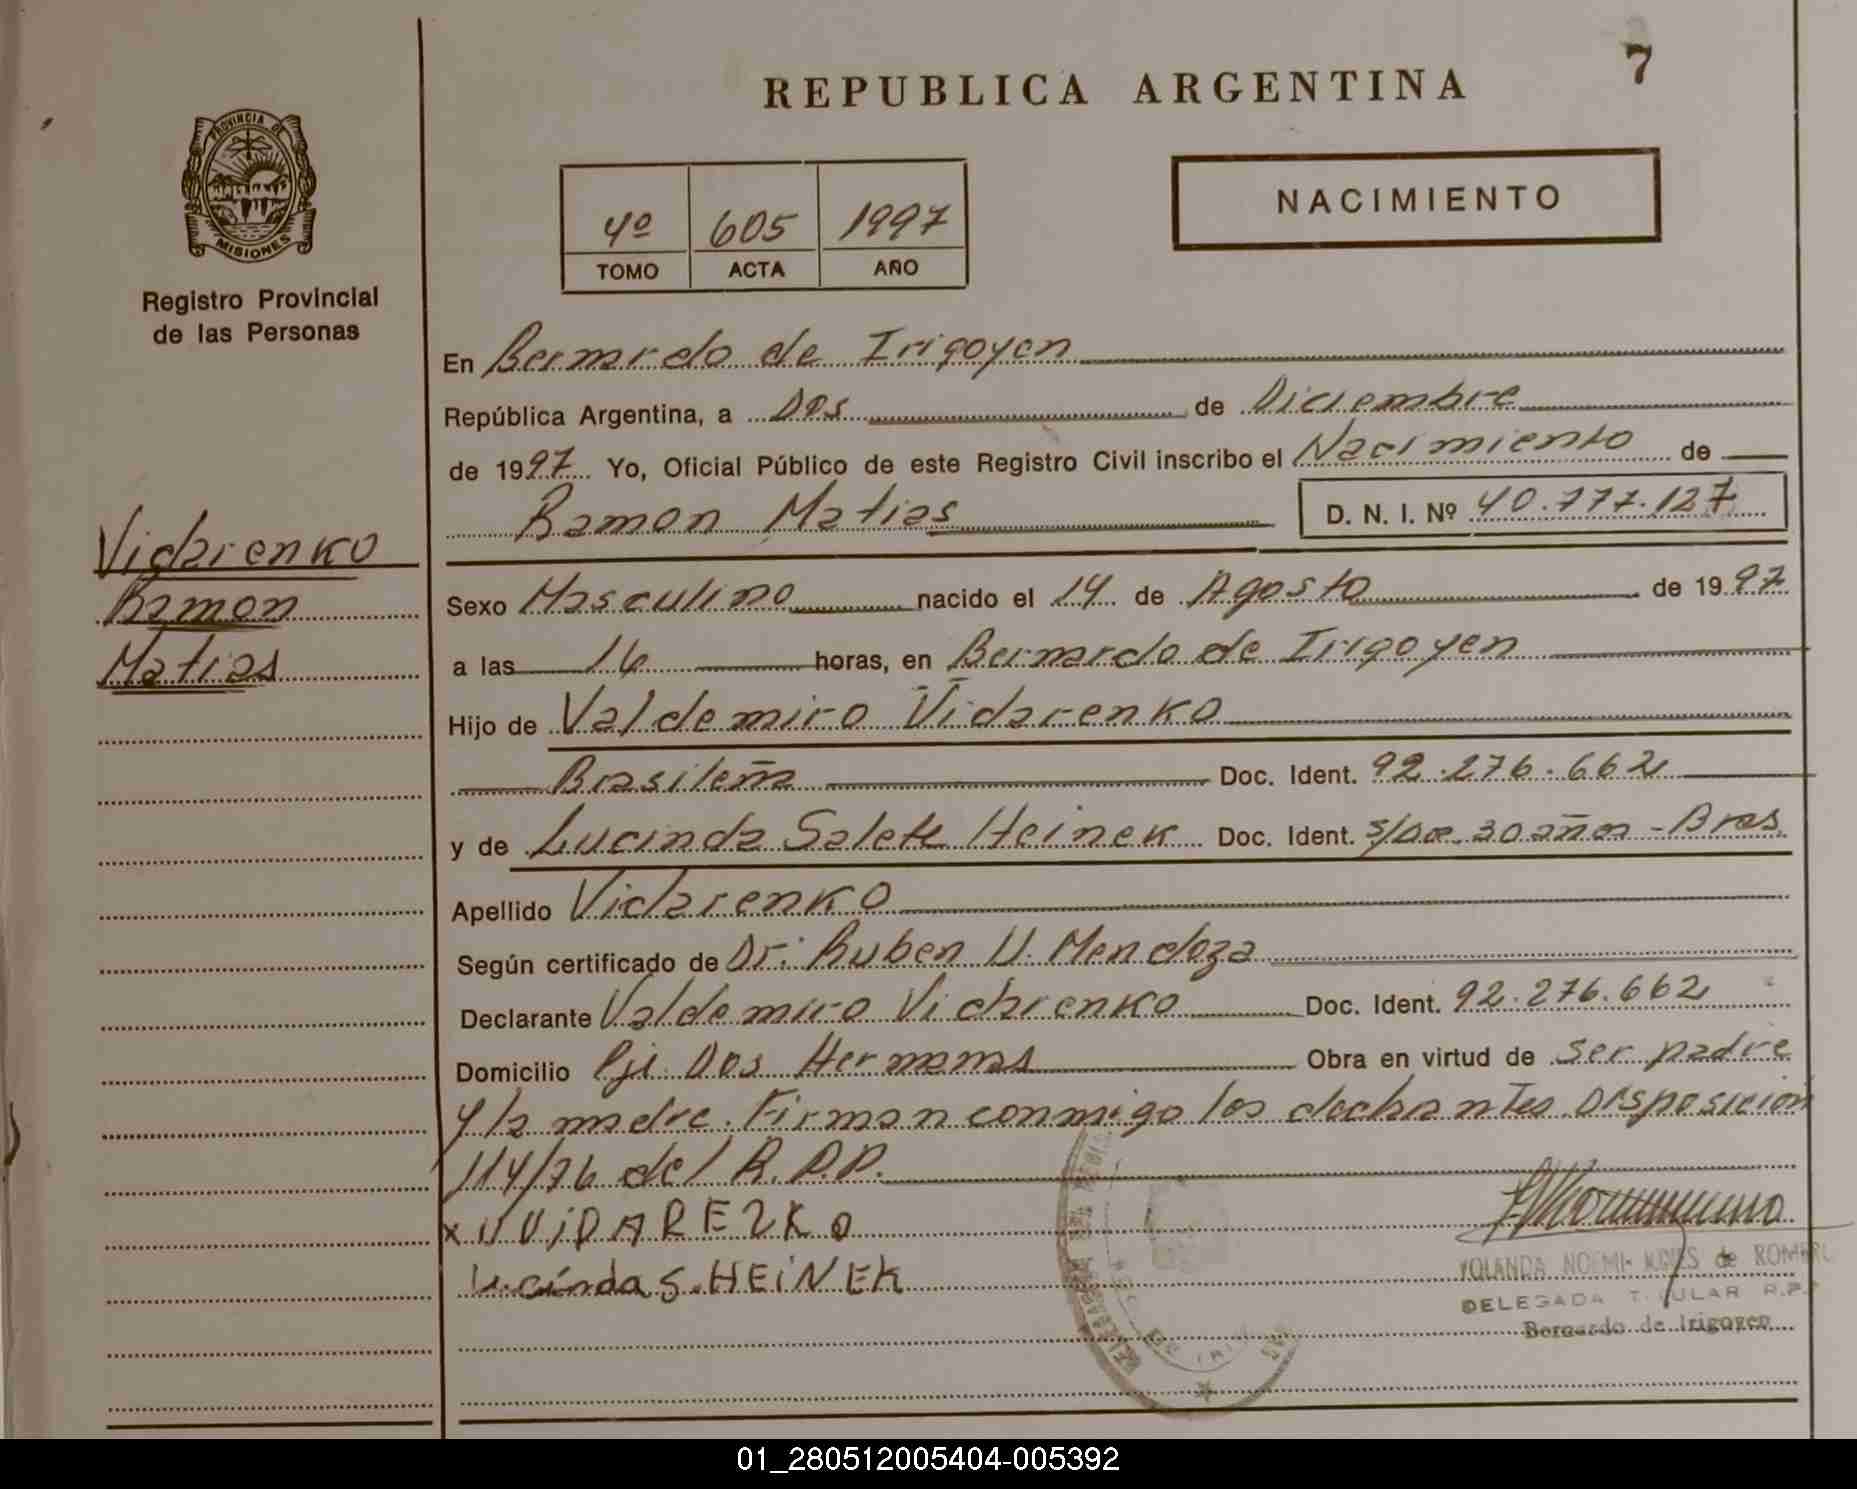 7
REPUBLICA ARGENTINA
PROVINCIA DE
MISIONES
Registro Provincial
de las Personas
NACIMIENTO
4º 605 1997
TOMO ACTA AÑO
En Bernardo de Irigoyen
República Argentina, a Dos de Diciembre
de 1997 Yo, Oficial Público de este Registro Civil inscribo el Nacimiento de
Ramon Matias D. N. I. Nº 40.777.127
Vidarenko
Ramon
Matias
Sexo Masculino nacido el 14 de Agosto de 1997
a las 16 horas, en Bernardo de Irigoyen
Hijo de Valdemiro Vidarenko
Brasileña Doc. Ident. 92.276.662
y de Lucinda Salete Heinek Doc. Ident. s/Doc. 30 años - Bras.
Apellido Vidarenko
Según certificado de Dr: Ruben U. Mendoza
Declarante Valdemiro Vidarenko Doc. Ident. 92.276.662
Domicilio Pje. Dos Hermanas Obra en virtud de ser padre
y la madre. Firman conmigo los declarantes. Disposición
114/76 del R.P.P.
x VIDAREZKO
Lucinda S. HEINEK
YOLANDA NOEMI de ROMERO
DELEGADA TITULAR R.P.
Bernardo de Irigoyen
01_280512005404-005392